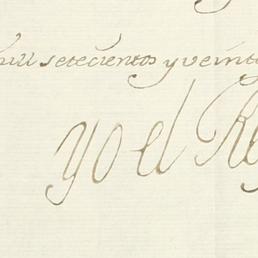 mill setecientos y veinte
yo el Rey